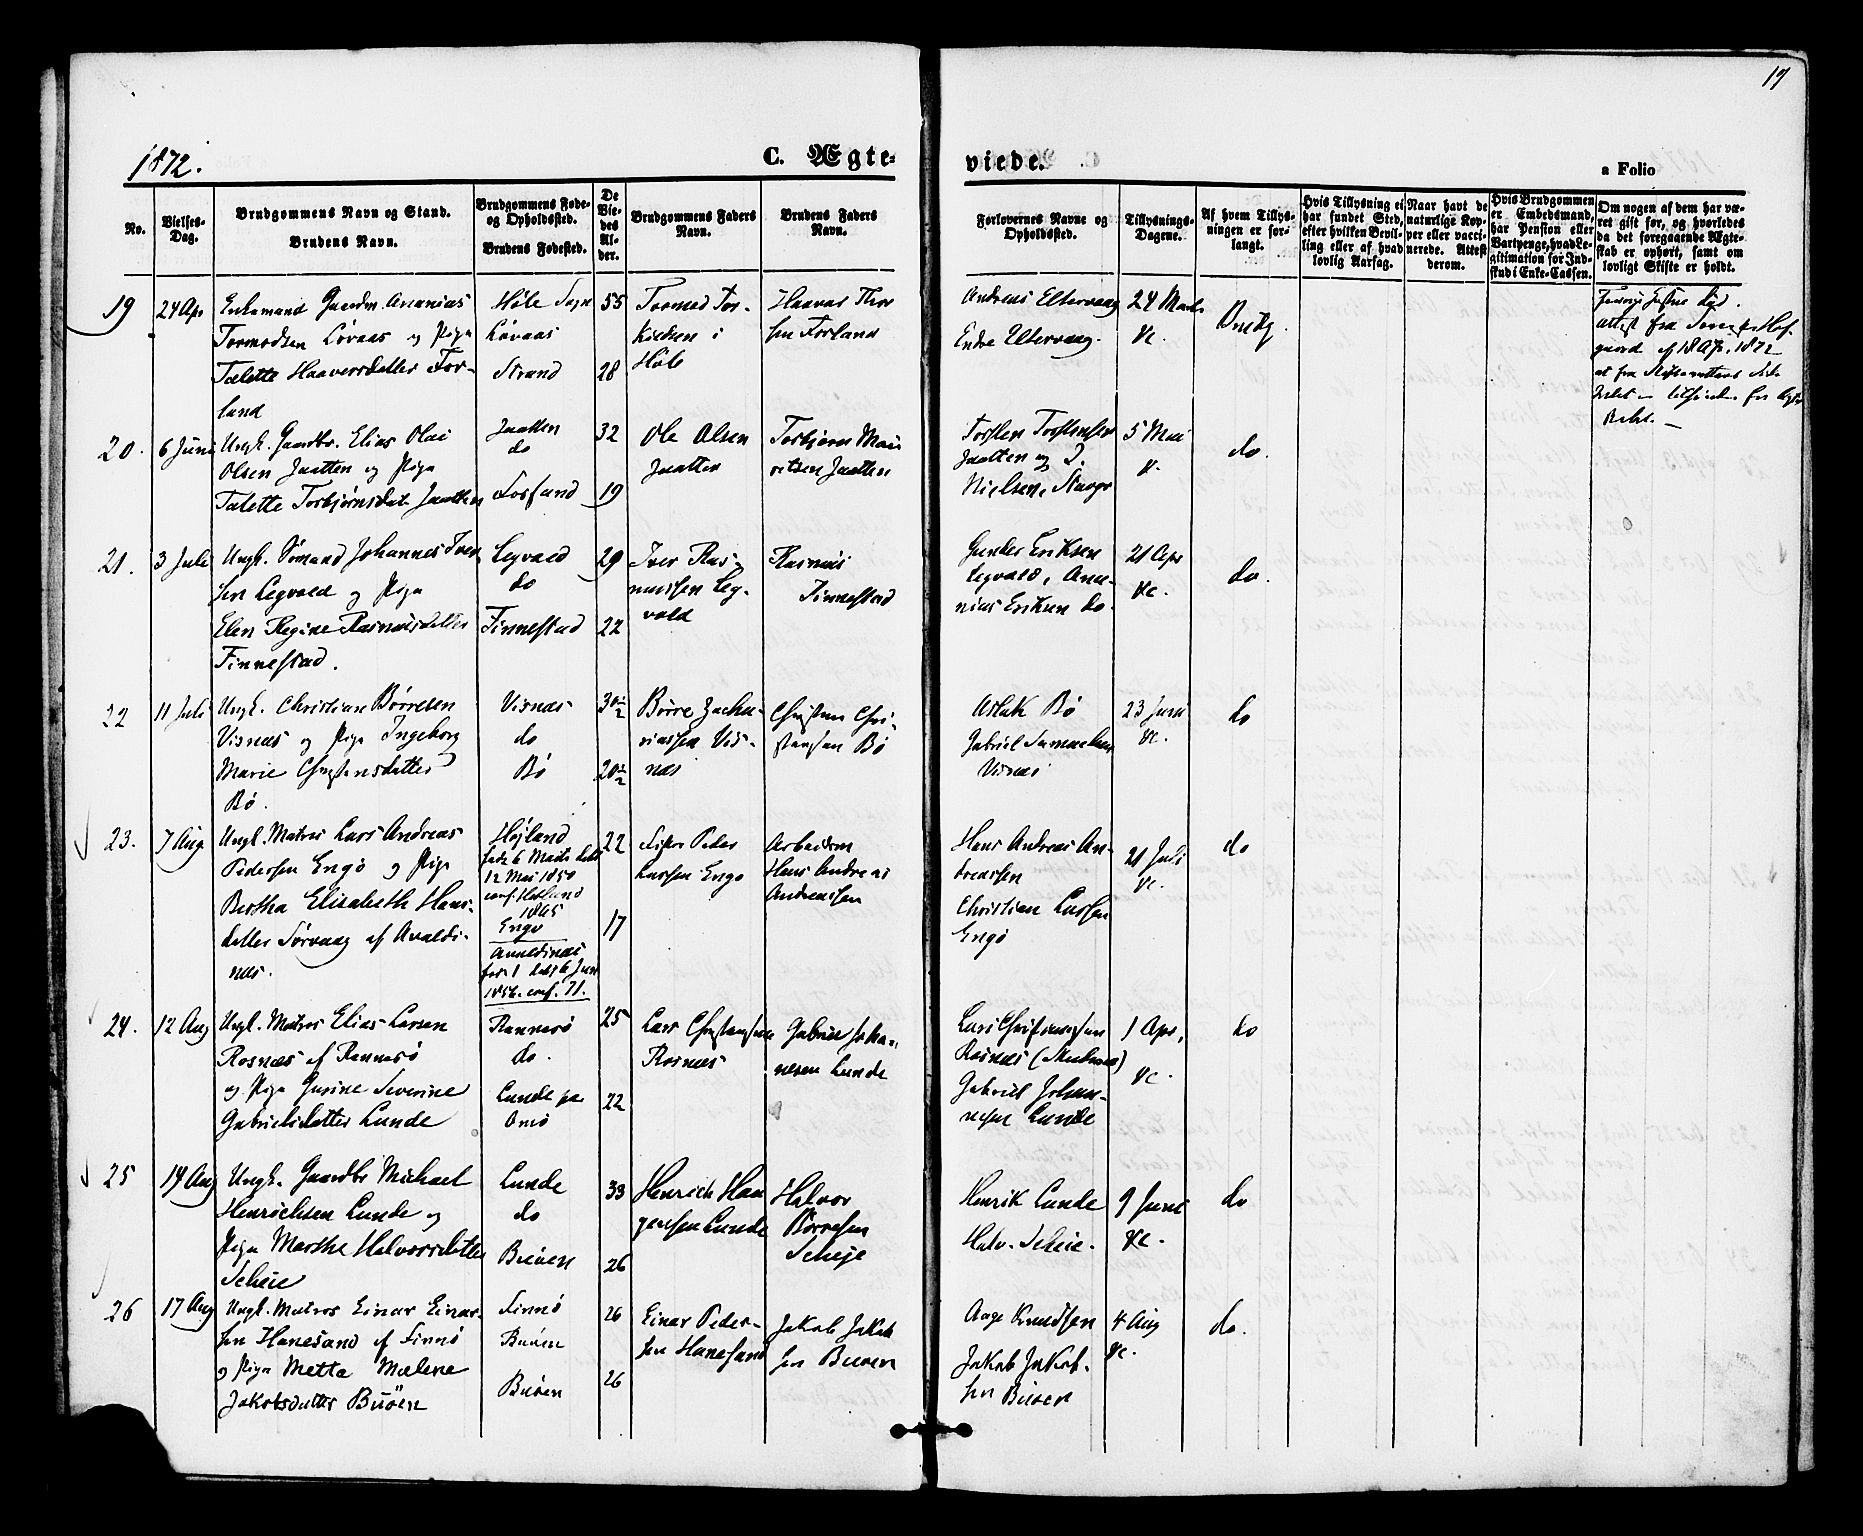 17
1872.
C. Ægte-
viede.
a Folio
No.
Vielses-
Dag.
Brudgommens Navn og Stand.
Brudens Navn.
Brudgommens Føde-
og Opholdssted.
Brudens Fødested.
De
Vie-
des
Al-
der.
Brudgommens Faders
Navn.
Brudens Faders
Navn.
Forlovernes Navne og
Opholdssted.
Tillysnings-
Dagene.
Af hvem Tillys-
ningen er for-
langt.
Hvis Tillysning ei
har fundet Sted,
efter hvilken Bevil-
ling eller af hvad
lovlig Aarsag.
Naar havt de
naturlige Kop-
per eller vacci-
nerede. Attest
derom.
Hvis Brudgommen
er Embedsmand,
har Pension eller
Vartpenge, hvad Le-
gitimation for Ind-
skud i Enke-Cassen.
Om nogen af dem har væ-
ret gift før, og hvorledes
da det foregaaende Ægte-
skab er ophørt, samt om
lovligt Skifte er holdt.
19
24 Apr
Enkemand Gaardm. Ananias
Tormodsen Løvaas og Pige
Talette Haaversdatter For-
land
Høle Sogn
Løvaas
Strand
55
28
Tormod Tor-
kielsen i
Høle
Haavar Thor
sen Forland
Andreas Eltervaag
Endre Eltervaag.
24 Marts
&c.
Brudg
af 18 Apr. 1872
20.
6 Juni
Ungk. Gaardbr. Elias Olai
Olsen Jaatten og Pige
Talette Torbjørnsdat. Jaatten
Jaatten
do
Fosfand
32
19
Ole Olsen
Jaatten
Torbjørn Mau
ritsen Jaatten
Torsten Torstensen
Jaatten og J.
Nielsen, Stavgr
5 Mai
&.
do.
21.
3 Juli
Ungk. Sømand Johannes Iver
sen Legvald og Pige
Elen Regine Rasmusdatter
Finnestad.
Legvald
do
Finnestad
29
22
Iver Ras-
mussen Leg-
vold
Rasmus
Finnestad
Gunder Eriksen
Legvald, Ana-
nias Eriksen do.
21 Apr
&c.
do.
22
11 Juli
Ungk. Christian Børresen
Visnæs og Pige Ingeborg
Marie Christensdatter
Bø.
Visnæs
do
Bø
30½
20½
Børre Zacha-
riassen Vis-
næs
Christen Chri-
stensen Bø
Aslak Bø
Gabriel Samuelsen
Visnæs
23 Juni
&c.
do
23.
7 Aug
Ungk. Matros Lars Andreas
Pedersen Engø og Pige
Bertha Elisabeth Hans-
datter Sørvaag af Avalds-
næs.
Højland
født 6 Marts døbt
12 Mai 1850
conf. Hetland
1865
Engø
Avaldsnæs
fød 1 døbt 6 Juni
1856. conf. 71.
22
17
Fisker Peder
Larssen Engø
Arbeidsm
Hans Andreas
Andreassen
Hans Andreas An-
dreassen
Christian Larsen
Engø
21 Juli
&c.
do
24.
12 Aug
Ungk. Matros Elias Larsen
Rosnæs af Rennesø
og Pige Gurine Severine
Gabrielsdatter Lunde
Rennesø
do.
Lunde pa
Omø
25
22
Lars Christensen
Rosnæs
Gabriel Joha-
nesen Lunde
Lars Christensen
Rosnæs
Gabriel Johan-
nesen Lunde
1 Apr,
&c.
do
25
14 Aug
Ungk. Gaardbr Michael
Henrichsen Lunde og
Pige Martha Halvorsdatter
Scheie
Lunde
do
Buøen
33
26
Henrich Haa
gensen Lunde
Halvor
Børresen
Scheje
Henrik Lunde
Halv. Scheie.
9 Juni
&c.
do
26
17 Aug
Ungk. Matros Einar Einar-
sen Hanesand af Finnø
og Pige Metta Malene
Jakobsdatter Buöen
Finnø
Buøen
Buøen
26
26
Einar Peder-
sen Hanesand
Jakob Jakob
sen Buøen
Aage Knudsen
Jakob Jakob-
sen Buøen
4 Aug
&c.
do.